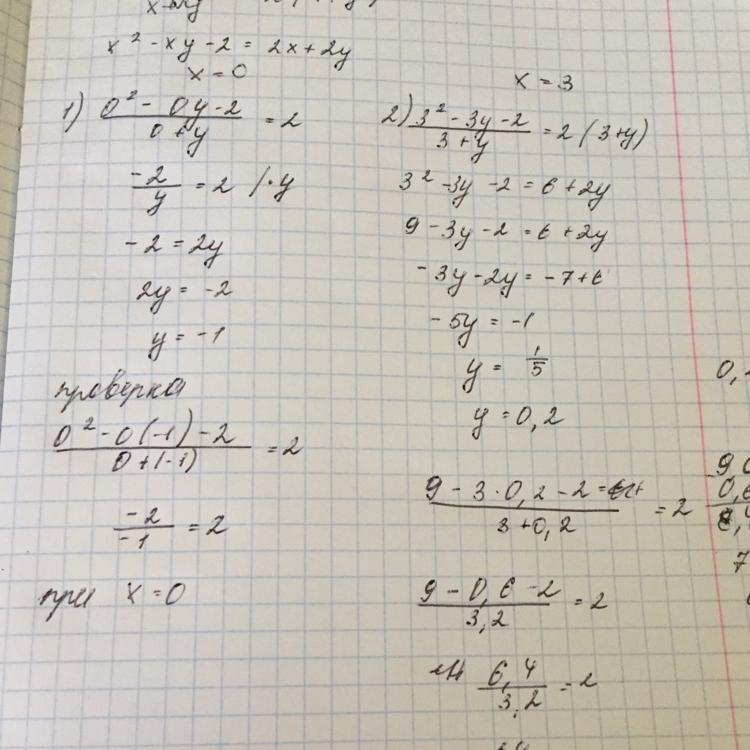 x² - xy - 2 = 2x + 2y
x = 0
1) (0² - 0y - 2)/(0 + y) = 2
-2/y = 2 /·y
-2 = 2y
2y = -2
y = -1
проверка
(0² - 0(-1) - 2)/(0 + (-1)) = 2
-2/-1 = 2
при x = 0
x = 3
2) (3² - 3y - 2)/(3 + y) = 2 (3+y)
3² - 3y - 2 = 6 + 2y
9 - 3y - 2 = 6 + 2y
-3y - 2y = -7 + 6
-5y = -1
y = 1/5
y = 0,2
(9 - 3·0,2 - 2)/(3 + 0,2) = 2
(9 - 0,6 - 2)/3,2 = 2
6,4/3,2 = 2